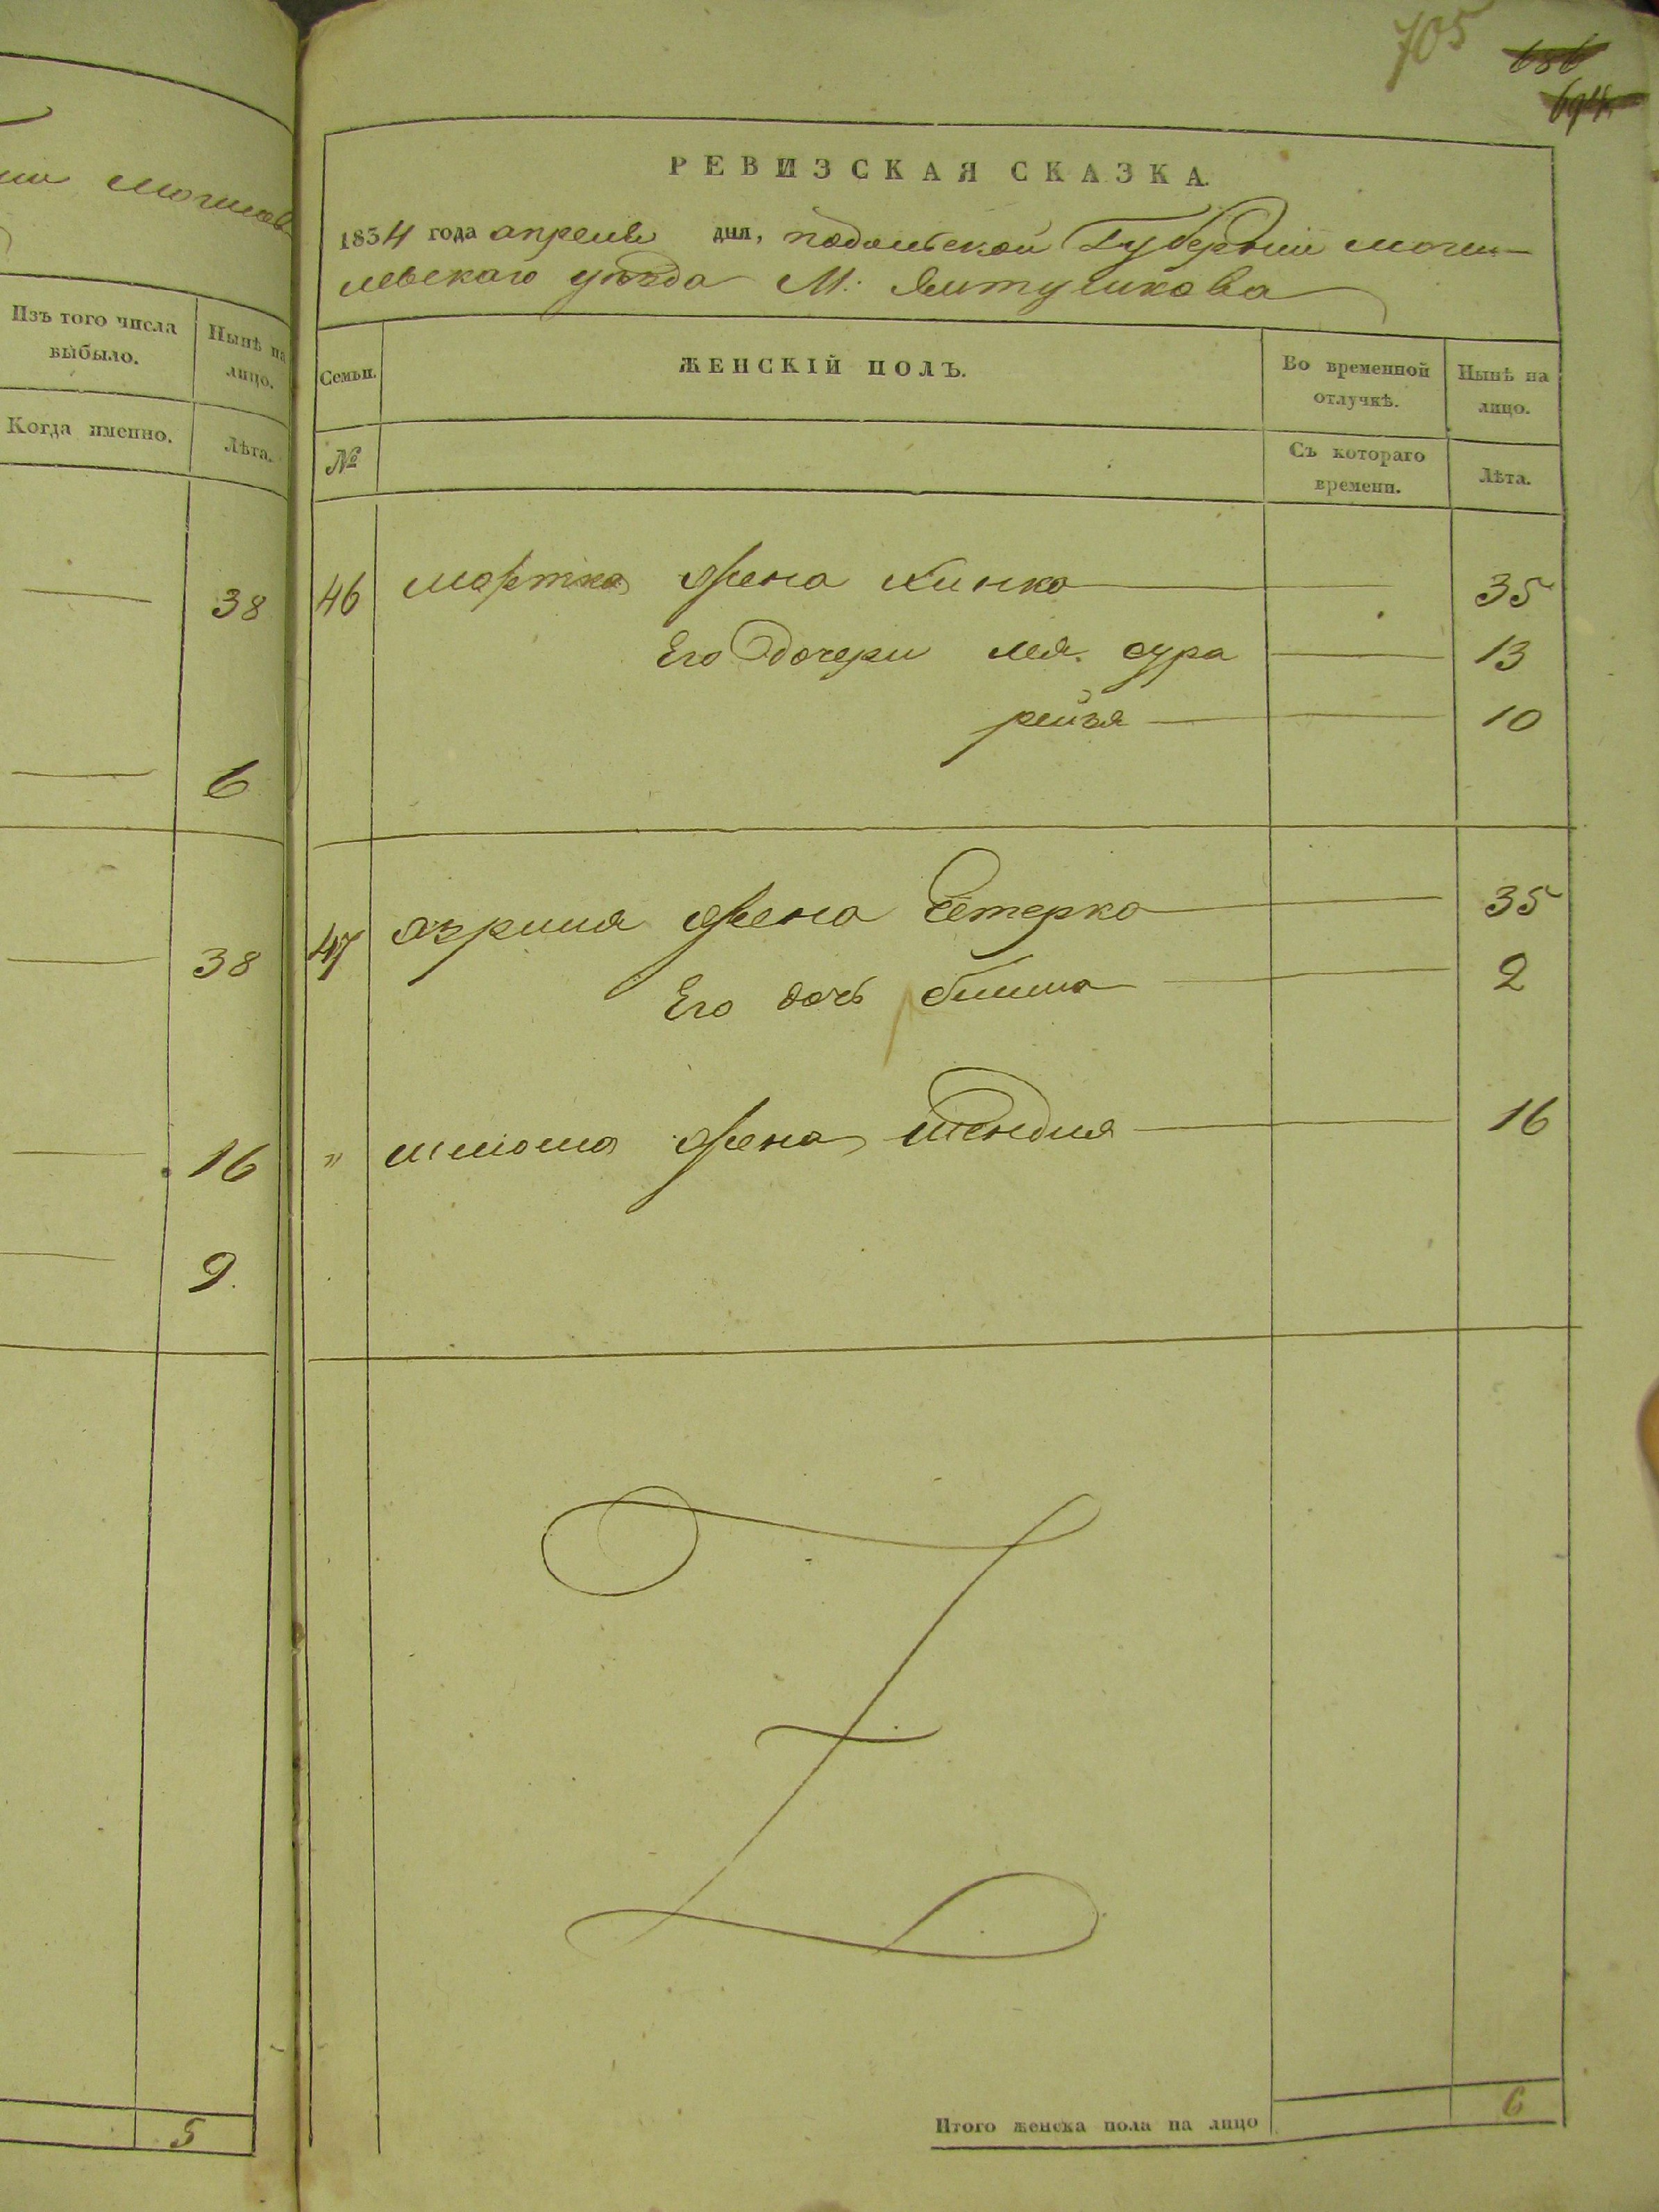 705
686
694
Изъ того числа выбыло.
Нынѣ на лицо.
Когда именно.
Лѣта.
38
6
38
16
9
5
РЕВИЗСКАЯ СКАЗКА.
1854 года апреля дня, подольской Губернии моги-
левскаго уѣзда М. Ялтушкова
Семьи.
ЖЕНСКІЙ ПОЛЪ.
Во временной отлучкѣ.
Нынѣ на лицо.
№
Съ котораго времени.
Лѣта.
46 мортка жена хинка 35
Его дочери лея. сура 13
рейзя 10
47 азриля жена Етерка 35
Его дочь бишма 2
" шлиома жена шендля 16
Итого женска пола на лицо 6